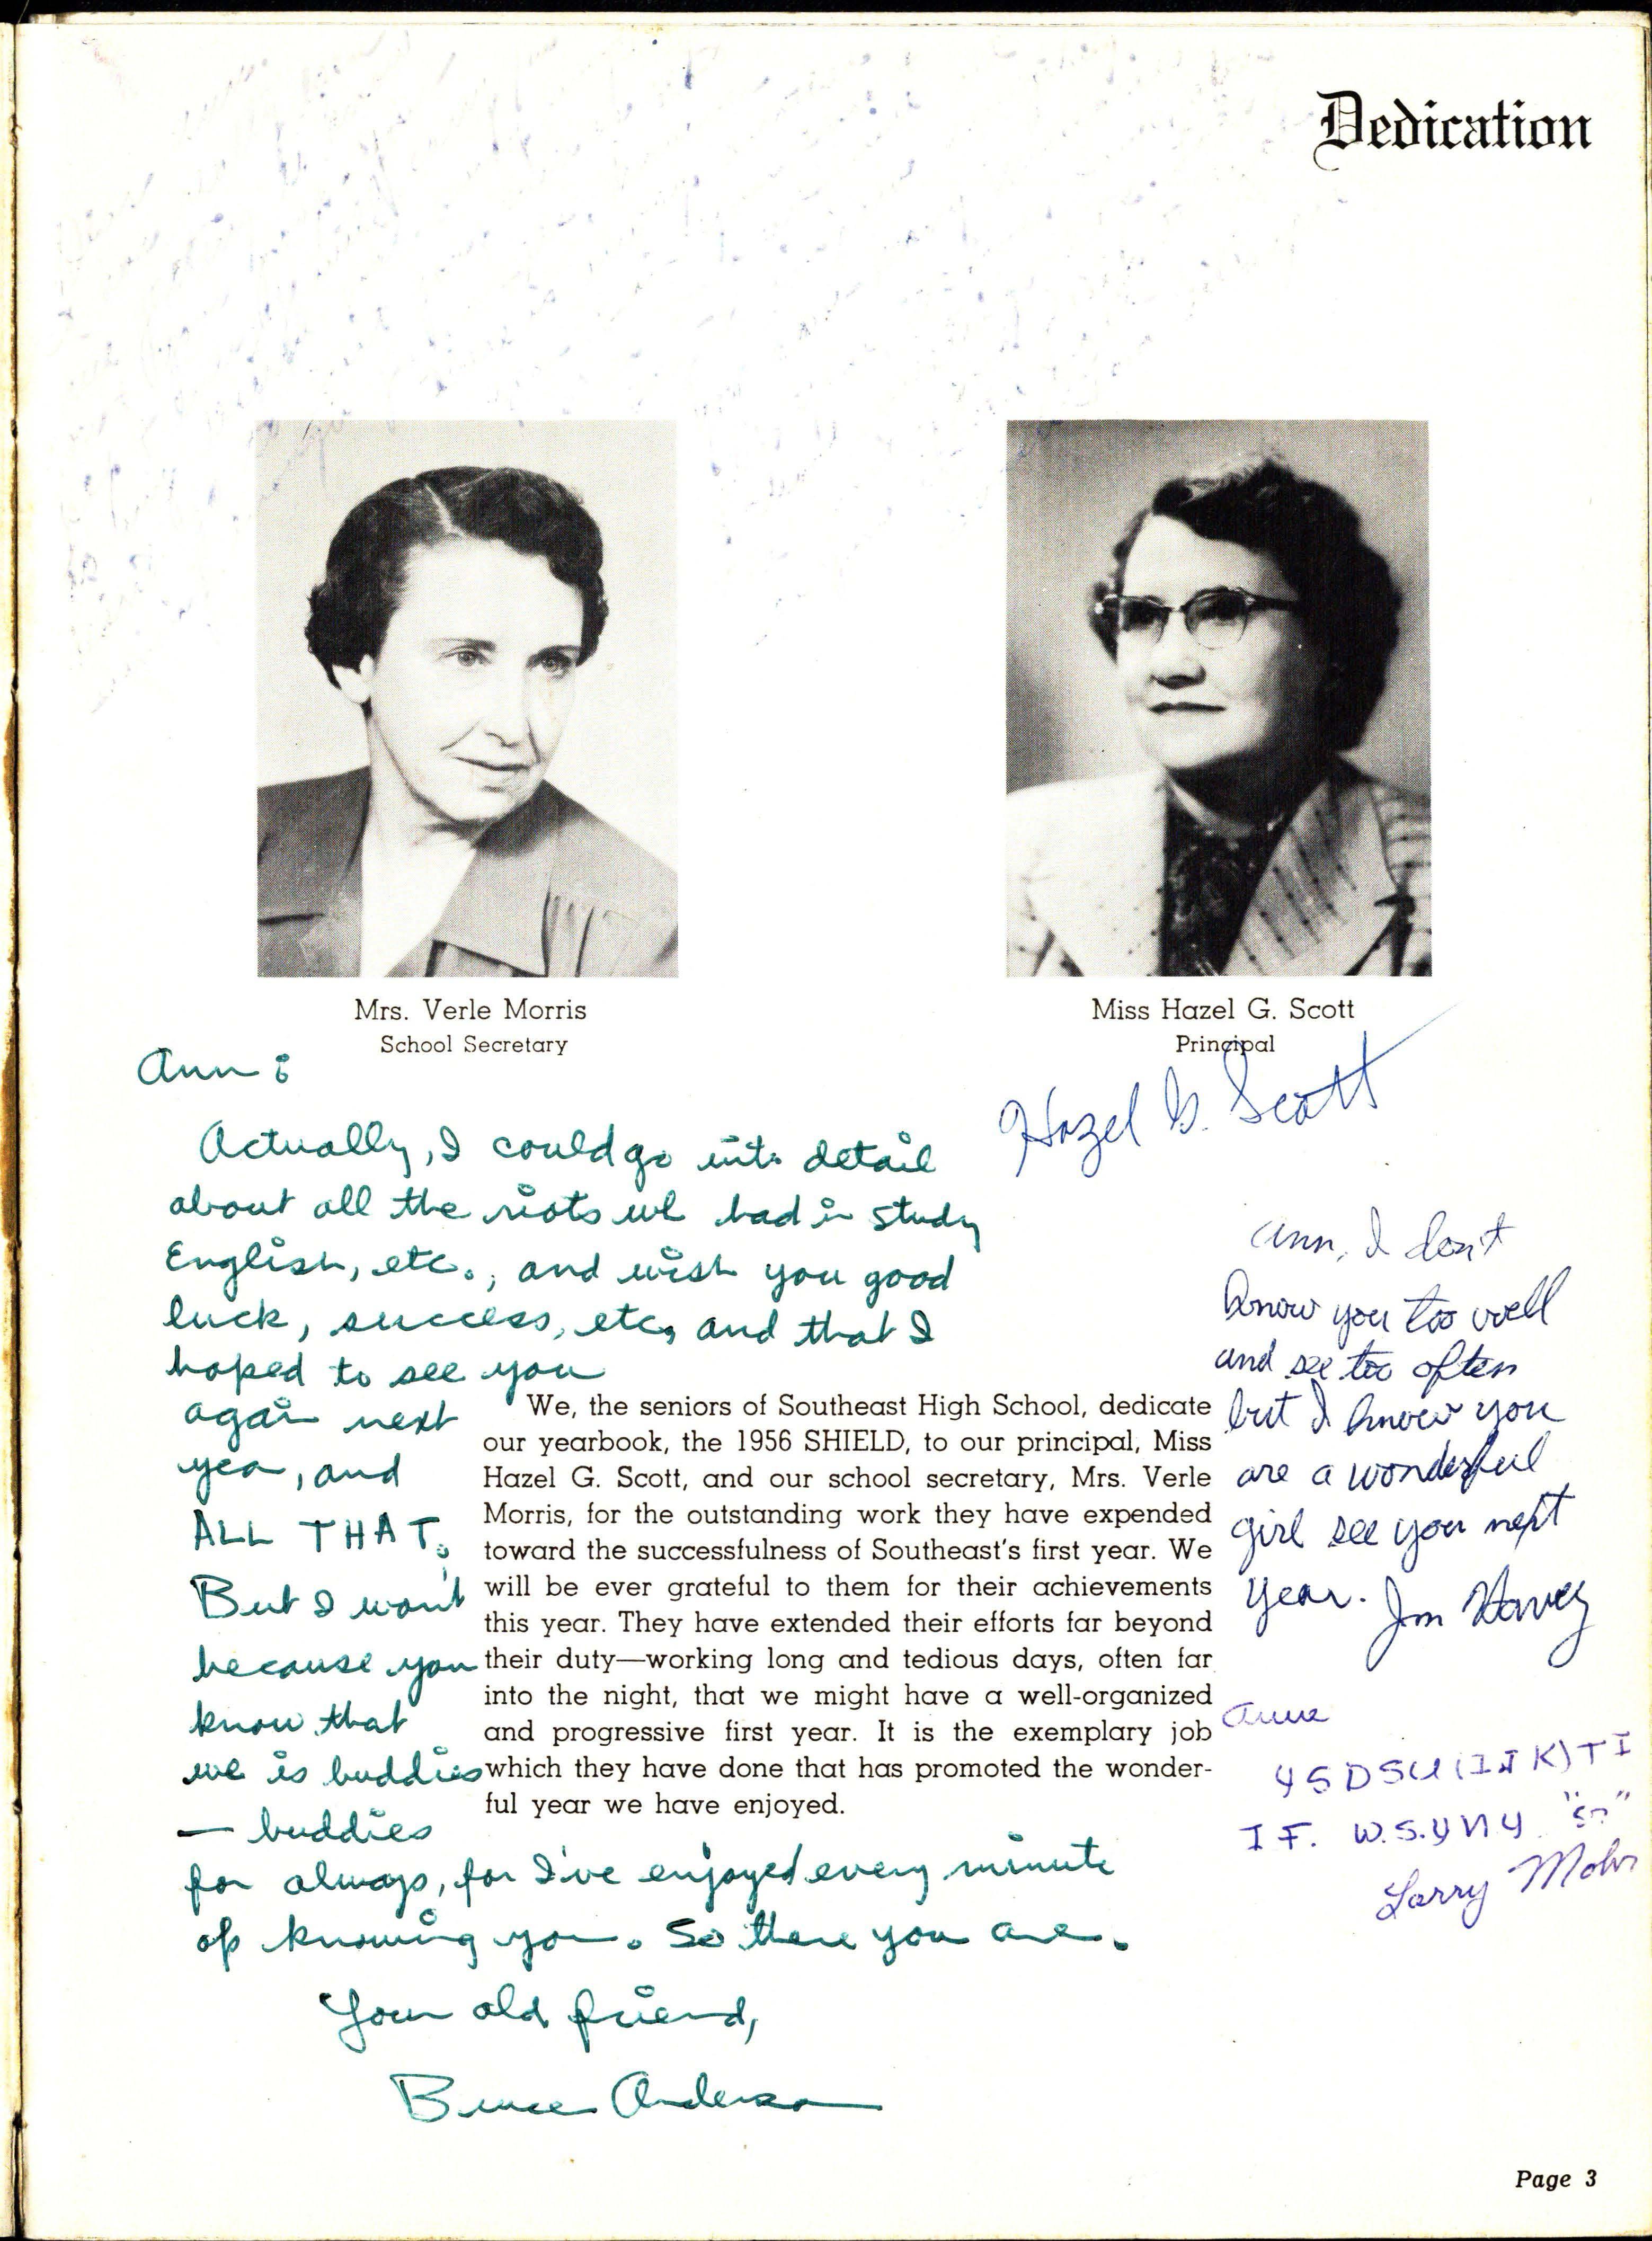 Dedication
Mrs. Verle Morris
School Secretary
Miss Hazel G. Scott
Principal
Hazel G. Scott
Ann:
Actually, I could go into detail
about all the riots we had in study
English, etc., and wish you good
luck, success, etc, and that I
hoped to see you
again next
year, and
ALL THAT.
But I won't
because you
know that
we is buddies
— buddies
for always, for I've enjoyed every minute
of knowing you. So there you are.
Your old friend,
Bruce Anderson
We, the seniors of Southeast High School, dedicate
our yearbook, the 1956 SHIELD, to our principal, Miss
Hazel G. Scott, and our school secretary, Mrs. Verle
Morris, for the outstanding work they have expended
toward the successfulness of Southeast's first year. We
will be ever grateful to them for their achievements
this year. They have extended their efforts far beyond
their duty—working long and tedious days, often far
into the night, that we might have a well-organized
and progressive first year. It is the exemplary job
which they have done that has promoted the wonder-
ful year we have enjoyed.
Ann, I don't
know you too well
and see too often
but I know you
are a wonderful
girl see you next
year. Jim Harvey
Anne
4SDSU(IJK)TI
I F. W.S.Y N.Y
Larry
Page 3